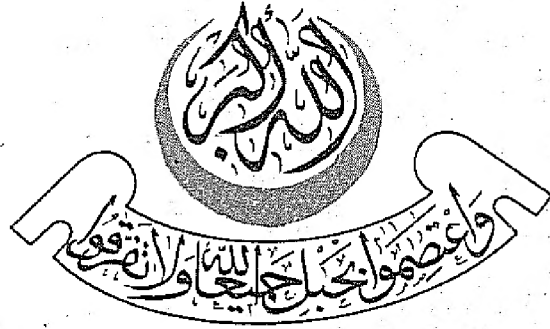 الله أكبر
وَاعْتَصِمُوا بِحَبْلِ اللَّهِ جَمِيعًا وَلَا تَفَرَّقُوا